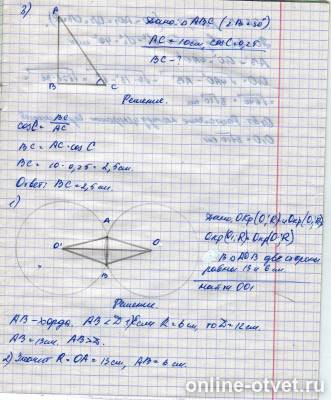 3)
A
B
C
Дано: △ABC (∠B=90°)
AC=10см, cosC=0,25
BC-?
Решение.
cosC = BC/AC
BC = AC·cosC
BC = 10·0,25 = 2,5см.
Ответ: BC=2,5см.
1)
A
O'
O
B
Дано: Окр(O';R) и Окр(O;R)
Окр(O;R)=Окр(O';R)
В △AOB две стороны
равны 13 и 6 см
Найти OO1
Решение
AB-хорда. AB<D 1) Если R=6см, то D=12см.
AB=13см. AB>D.
2) Значит R=OA=13см, AB=6см.
online-otvet.ru